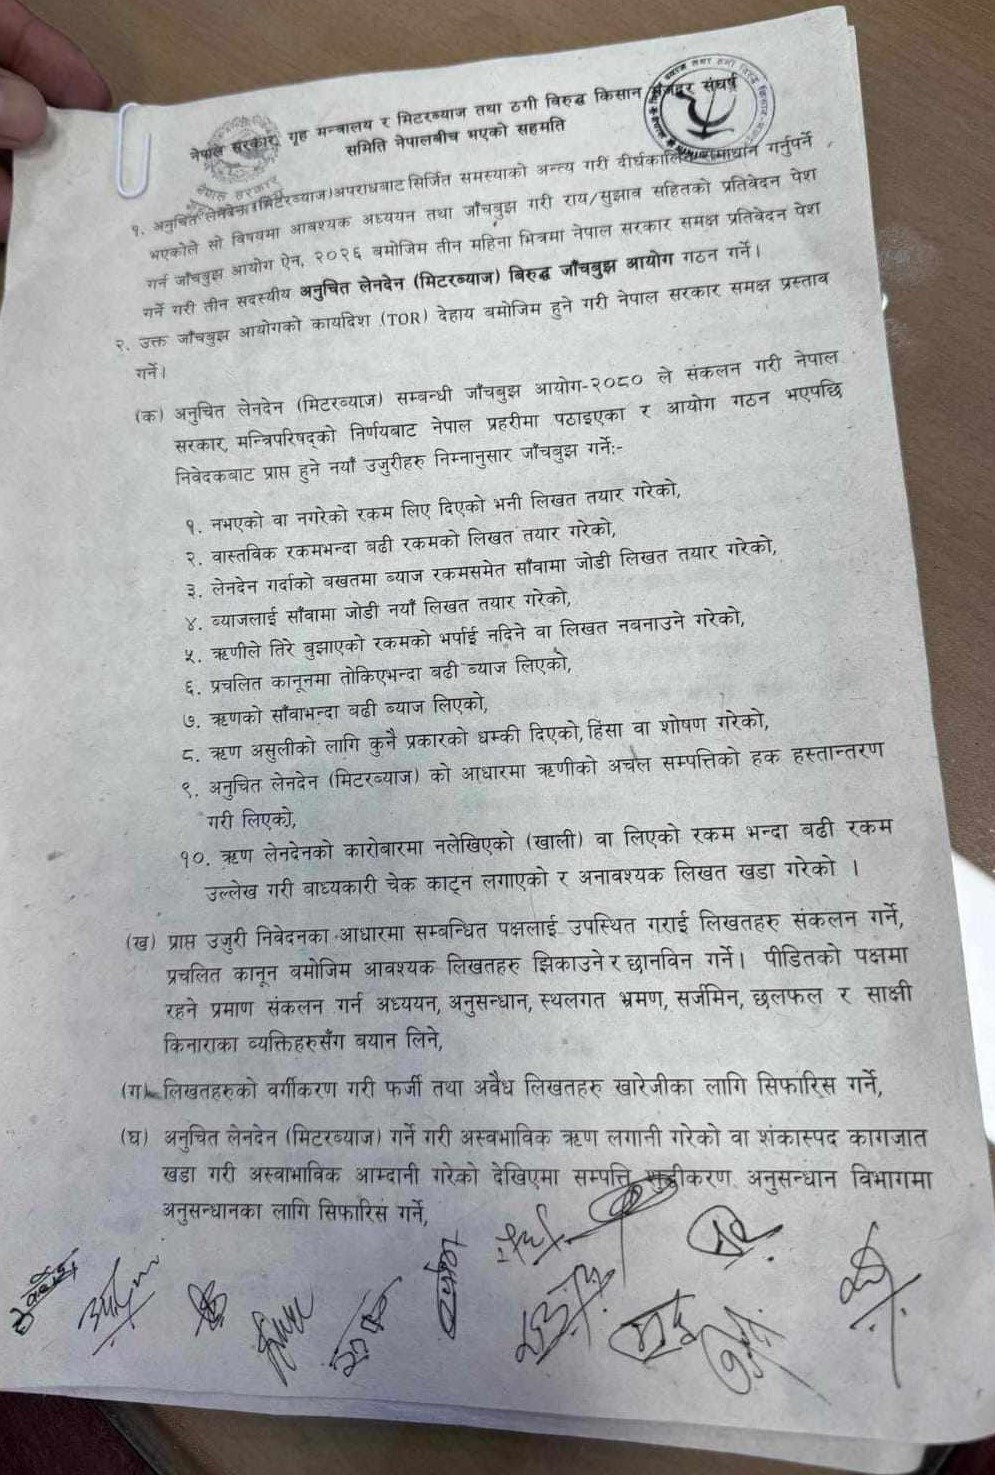 नेपाल सरकार, गृह मन्त्रालय र मिटरब्याज तथा ठगी विरुद्ध किसान मजदुर संघर्ष
समिति नेपालबीच भएको सहमति
१. अनुचित लेनदेन (मिटरब्याज) अपराधबाट सिर्जित समस्याको अन्त्य गरी दीर्घकालिन समाधान गर्नुपर्ने
भएकोले सो विषयमा आवश्यक अध्ययन तथा जाँचबुझ गरी राय/सुझाव सहितको प्रतिवेदन पेश
गर्न जाँचबुझ आयोग ऐन, २०२६ बमोजिम तीन महिना भित्रमा नेपाल सरकार समक्ष प्रतिवेदन पेश
गर्ने गरी तीन सदस्यीय अनुचित लेनदेन (मिटरब्याज) बिरुद्ध जाँचबुझ आयोग गठन गर्ने।
२. उक्त जाँचबुझ आयोगको कार्यादेश (TOR) देहाय बमोजिम हुने गरी नेपाल सरकार समक्ष प्रस्ताव
गर्ने।
(क) अनुचित लेनदेन (मिटरब्याज) सम्बन्धी जाँचबुझ आयोग-२०८० ले संकलन गरी नेपाल
सरकार, मन्त्रिपरिषद्को निर्णयबाट नेपाल प्रहरीमा पठाइएका र आयोग गठन भएपछि
निवेदकबाट प्राप्त हुने नयाँ उजुरीहरु निम्नानुसार जाँचबुझ गर्नेः-
१. नभएको वा नगरेको रकम लिए दिएको भनी लिखत तयार गरेको,
२. वास्तविक रकमभन्दा बढी रकमको लिखत तयार गरेको,
३. लेनदेन गर्दाको बखतमा ब्याज रकमसमेत साँवामा जोडी लिखत तयार गरेको,
४. ब्याजलाई साँवामा जोडी नयाँ लिखत तयार गरेको,
५. ऋणीले तिरे बुझाएको रकमको भर्पाई नदिने वा लिखत नबनाउने गरेको,
६. प्रचलित कानूनमा तोकिएभन्दा बढी ब्याज लिएको,
७. ऋणको साँवाभन्दा बढी ब्याज लिएको,
८. ऋण असुलीको लागि कुनै प्रकारको धम्की दिएको, हिंसा वा शोषण गरेको,
९. अनुचित लेनदेन (मिटरब्याज) को आधारमा ऋणीको अचल सम्पत्तिको हक हस्तान्तरण
गरी लिएको,
१०. ऋण लेनदेनको कारोबारमा नलेखिएको (खाली) वा लिएको रकम भन्दा बढी रकम
उल्लेख गरी वाध्यकारी चेक काट्न लगाएको र अनावश्यक लिखत खडा गरेको ।
(ख) प्राप्त उजुरी निवेदनका आधारमा सम्बन्धित पक्षलाई उपस्थित गराई लिखतहरु संकलन गर्ने,
प्रचलित कानून बमोजिम आवश्यक लिखतहरु झिकाउने र छानविन गर्ने। पीडितको पक्षमा
रहने प्रमाण संकलन गर्न अध्ययन, अनुसन्धान, स्थलगत भ्रमण, सर्जमिन, छलफल र साक्षी
किनाराका व्यक्तिहरुसँग बयान लिने,
(ग) लिखतहरुको वर्गीकरण गरी फर्जी तथा अवैध लिखतहरु खारेजीका लागि सिफारिस गर्ने,
(घ) अनुचित लेनदेन (मिटरब्याज) गर्ने गरी अस्वभाविक ऋण लगानी गरेको वा शंकास्पद कागजात
खडा गरी अस्वाभाविक आम्दानी गरेको देखिएमा सम्पत्ति शुद्धीकरण अनुसन्धान विभागमा
अनुसन्धानका लागि सिफारिस गर्ने,